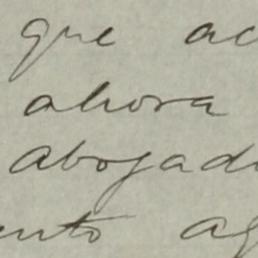 que ac
ahora
abogad
ento ag